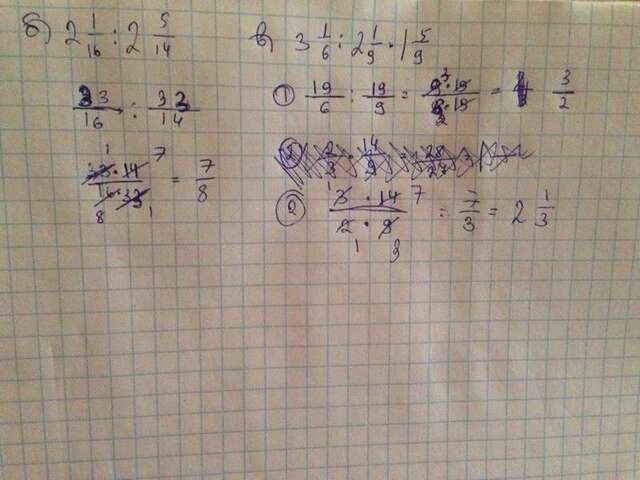 б) 2 1/16 : 2 5/14
33/16 : 33/14
33·14/16·33 = 7/8
в) 3 1/6 : 2 1/9 · 1 5/9
① 19/6 : 19/9 = 9·19/6·19 = 3/2
② 3·14/2·9 = 7/3 = 2 1/3